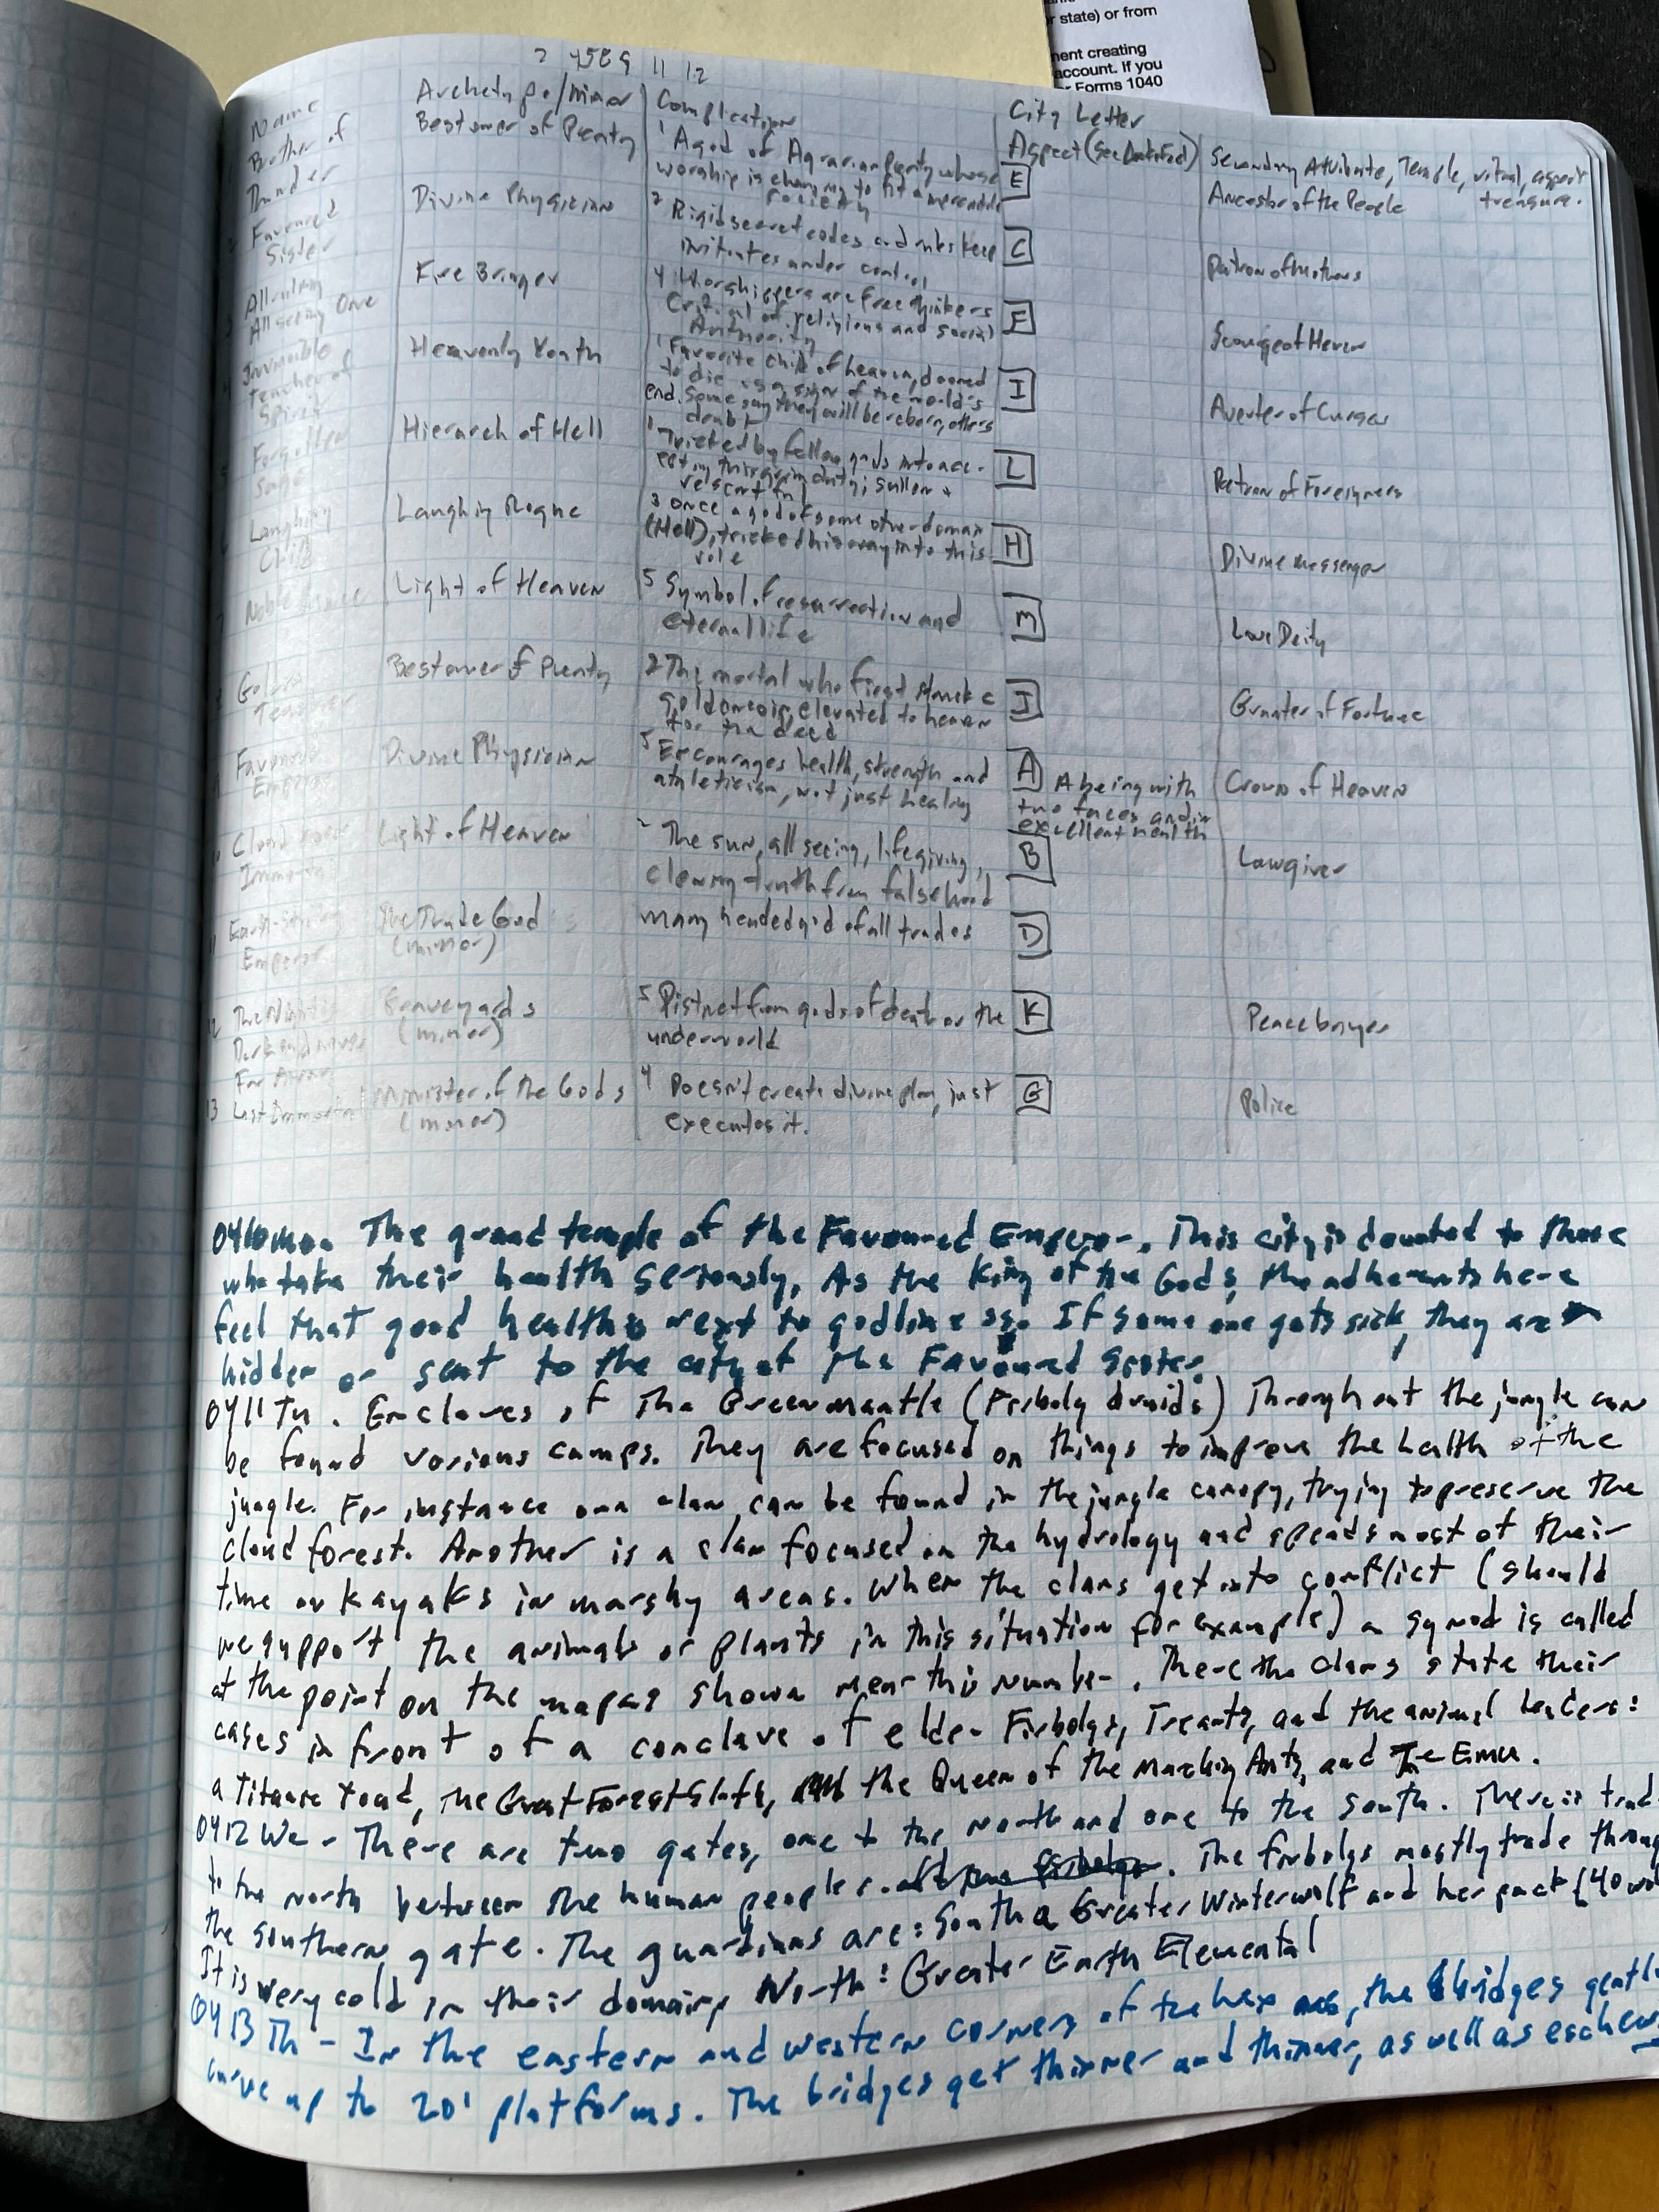 r state) or from
nent creating
account. If you
Forms 1040
2 4569 11 12
Name
Archetype/minor
Complication
City Letter
Aspect (see Detailed)
Secondary Attribute, Temple, ritual, aspect
treasure.
1 Brother of
Thunder
Bestower of Plenty
1 A god of Agrarian Plenty whose
worship is changing to fit a mercantile
society
E
Ancestor of the People
2 Favoured
Sister
Divine Physician
2 Rigid secret codes and rules keep
initiates under control
C
Patron of Mothers
3 Allruling
All seeing One
Fire Bringer
4 Worshippers are free thinkers
Critical of religious and social
Authority
F
Scourge of Heaven
4 Invincible
Teacher of
Spirit
Heavenly Youth
1 Favorite child of heaven, doomed
to die as a sign of the world's
end. Some say they will be reborn, others
doubt
I
Averter of Curses
5 Forgotten
Sage
Hierarch of Hell
1 Tricked by fellow gods into acc-
epting this grim duty; sullen +
resentful
L
Patron of Foreigners
6 Laughing
Child
Laughing Rogue
3 Once a god of some other domain
(Hell), tricked his way into this
role
H
Divine messenger
7 Noble
Light of Heaven
5 Symbol of resurrection and
eternal life
M
Love Deity
8 Golden
Teacher
Bestower of Plenty
2 The mortal who first struck a
gold coin, elevated to heaven
for the deed
J
Granter of Fortune
9 Favoured
Emperor
Divine Physician
5 Encourages health, strength and
athleticism, not just healing
A A being with
two faces and in
excellent health
Crown of Heaven
10 Cloud
Immortal
Light of Heaven
2 The sun, all seeing, lifegiving,
clearing truth from falsehood
B
Lawgiver
11 Earth-
Emperor
The Trade God
(minor)
Many headed god of all trades
D
12 The Night is
Dark and
Far Away
Graveyards
(minor)
5 Distinct from gods of death or the
underworld
K
Peacebringer
13 Last Immortal
Minister of the Gods
(minor)
4 Doesn't create divine plan, just
executes it.
G
Police
0410 Mo. The grand temple of the Favoured Emperor. This city is devoted to those
who take their health seriously. As the King of the Gods, the adherents here
feel that good health is next to godliness. If some one gets sick, they are
hidden or sent to the city of the Favoured Sister.
0411 Tu. Enclaves of The Greenmantle (Firbolg druids) Throughout the jungle can
be found various camps. They are focused on things to improve the health of the
jungle. For instance one clan can be found in the jungle canopy, trying to preserve the
cloud forest. Another is a clan focused on the hydrology and spends most of their
time on kayaks in marshy areas. When the clans get into conflict (should
we support the animals or plants in this situation for example) a synod is called
at the point on the map as shown near this number. There the clans state their
cases in front of a conclave of elder Firbolgs, Treants, and the animal leaders:
a Titanic toad, The Great Forest Sloth, the Queen of the Marching Ants, and The Emu.
0412 We - There are two gates, one to the north and one to the south. There is trad
to the north between the human peoples. The firbolgs mostly trade throug
the southern gate. The guardians are: South a Greater Winterwolf and her pack (40
It is very cold in their domain, North: Greater Earth Elemental
0413 Th - In the eastern and western corners of the hex, the bridges gentl
curve up to 20' platforms. The bridges get thinner and thinner, as well as eschew